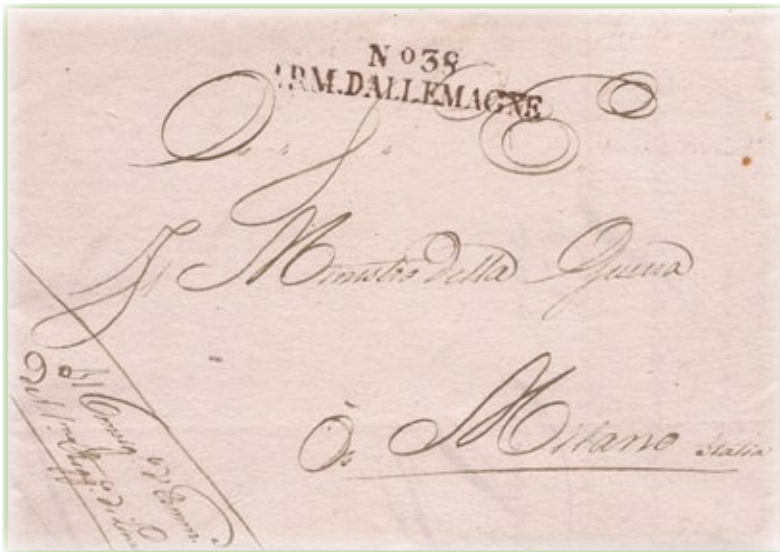 No 38
ARM. D'ALLEMAGNE
A S. E.
Il Ministro della Guerra
à Milano Italia
Il Consig.